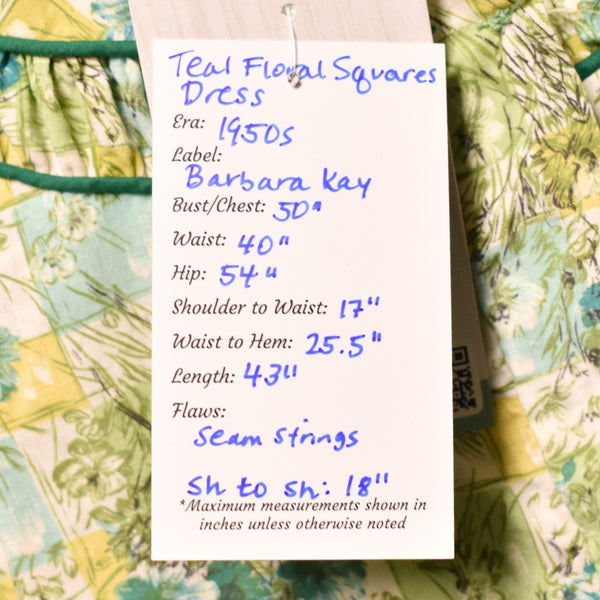 Teal Floral Squares
Dress
Era: 1950s
Label:
Barbara Kay
Bust/Chest: 50"
Waist: 40"
Hip: 54"
Shoulder to Waist: 17"
Waist to Hem: 25.5"
Length: 43"
Flaws:
Seam strings
Sh to sh: 18"
*Maximum measurements shown in
inches unless otherwise noted